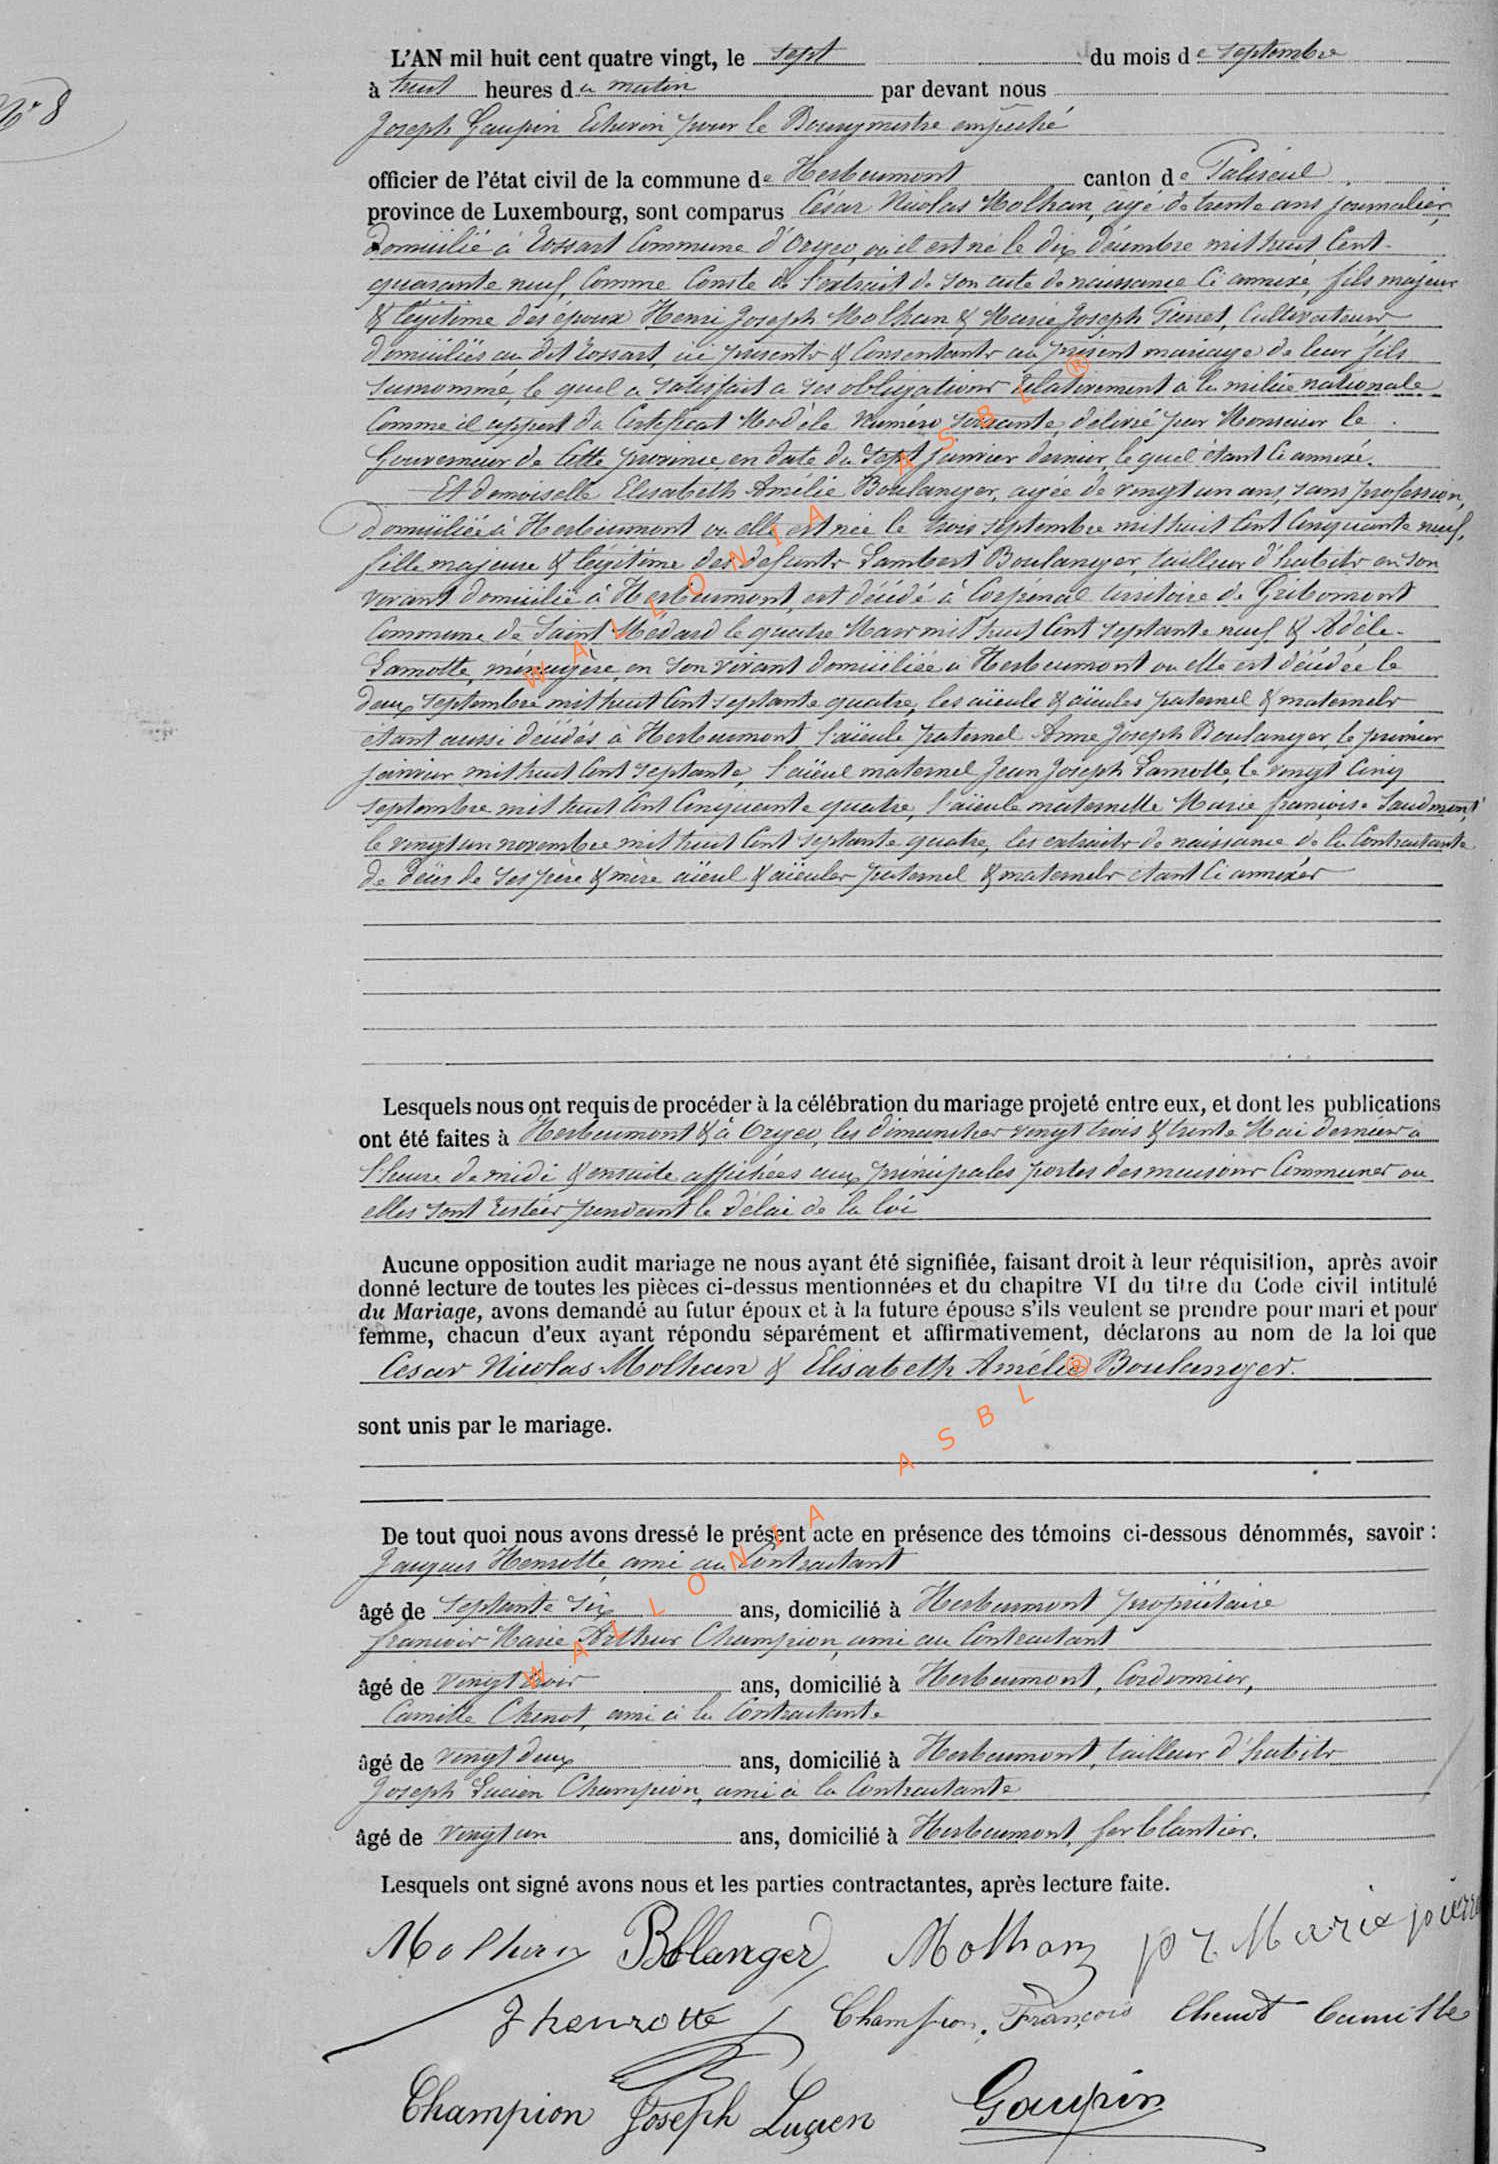 N° 8
L'AN mil huit cent quatre vingt, le sept du mois de septembre
à huit heures du matin par devant nous
Joseph Gaupin Echevin pour le Bourgmestre empêché
officier de l'état civil de la commune de Herbeumont canton de Paliseul
province de Luxembourg, sont comparus César Nicolas Molhan, âgé de trente ans journalier,
domicilié à Rossart Commune d'Orgeo, où il est né le dix décembre mil huit Cent
quarante neuf, Comme Conste de l'extrait de son acte de naissance Ci annexé, fils majeur
& légitime des époux Henri Joseph Molhan & Marie Joseph Pierret, Cultivateurs
domiciliés au dit Rossart, ici présents & Consentants au présent mariage de leur fils
surnommé, le quel a satisfait a ses obligations relativement à la milice nationale
Comme il appert du Certificat Modèle Numéro soixante, délivré par Monsieur le
Gouverneur de Cette province en date du Sept janvier dernier, le quel étant Ci annexé.
Et demoiselle Elisabeth Amélie Boulanger, agée de vingt un ans, sans profession,
domiciliée à Herbeumont ou elle est née le trois septembre mil huit Cent Cinquante neuf,
fille majeure & légitime des défunts Lambert Boulanger, tailleur d'habits en son
vivant domicilié à Herbeumont, est décédé à territoire de Gribomont
Commune de Saint Médard le quatre Mars mil huit Cent septante neuf & Adèle
Lamotte, ménagère, en son vivant domiciliée à Herbeumont ou elle est décédée le
deux septembre mil huit Cent septante quatre, les aïeuls & aïeules paternel & maternels
étant aussi décédés à Herbeumont l'aïeule paternel Anne Joseph Boulanger, le premier
janvier mil huit Cent septante, l'aïeul maternel Jean Joseph Lamotte, le vingt Cinq
septembre mil huit Cent Cinquante quatre, l'aïeule maternelle Marie françoise Laudmont,
le vingt un novembre mil huit Cent septante quatre, les extraits de naissance de la Contractante
de décès de ses père & mère aïeul & aïeules paternel & maternels étant Ci annexés
Lesquels nous ont requis de procéder à la célébration du mariage projeté entre eux, et dont les publications
ont été faites à Herbeumont & à Orgeo, les dimanches vingt trois & trente Mai dernier à
l'heure de midi & ensuite affichées aux principales portes des maisons Communes ou
elles sont restées pendant le délai de la loi
Aucune opposition audit mariage ne nous ayant été signifiée, faisant droit à leur réquisition, après avoir
donné lecture de toutes les pièces ci-dessus mentionnées et du chapitre VI du titre du Code civil intitulé
du Mariage, avons demandé au futur époux et à la future épouse s'ils veulent se prendre pour mari et pour
femme, chacun d'eux ayant répondu séparément et affirmativement, déclarons au nom de la loi que
César Nicolas Molhan & Elisabeth Amélie Boulanger.
sont unis par le mariage.
De tout quoi nous avons dressé le présent acte en présence des témoins ci-dessous dénommés, savoir :
Jacques Henrotte, ami au Contractant
âgé de septante six ans, domicilié à Herbeumont propriétaire
françois Marie Arthur Champion, ami au Contractant
âgé de vingt trois ans, domicilié à Herbeumont, Cordonnier,
Camille Chenot, ami à la Contractante
âgé de vingt deux ans, domicilié à Herbeumont, tailleur d'habits
Joseph Lucien Champion, ami à la Contractante
âgé de vingt un ans, domicilié à Herbeumont, ferblantier.
Lesquels ont signé avons nous et les parties contractantes, après lecture faite.
Molhan Bollanger Molhan Marie
J henrotte Champion, François Chenot Camille
Champion Joseph Lucien Gaupin
WALLONIA ASBL ®
WALLONIA ASBL ®